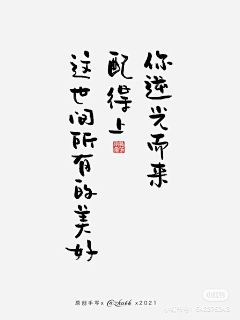 你逆光而来
配得上
这世间所有的美好
原创手写x
x2021
小红书